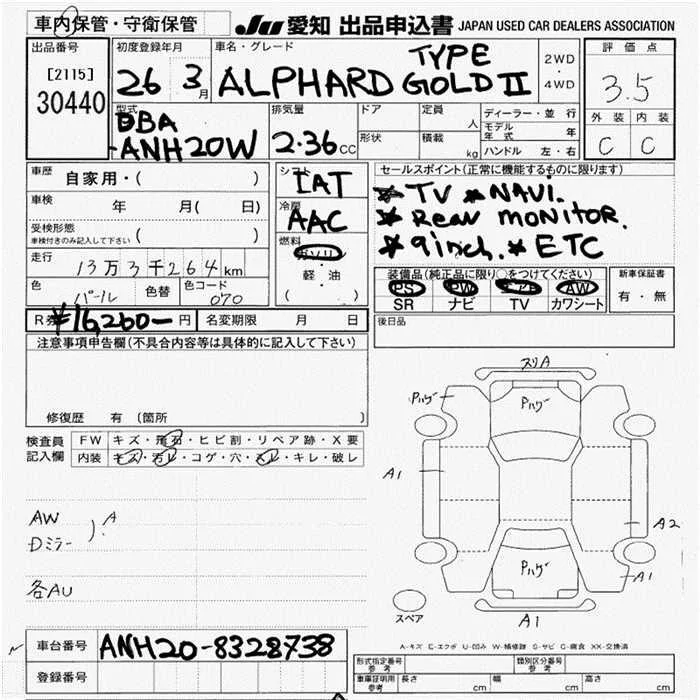 車内保管・守衛保管
JU 愛知 出品申込書 JAPAN USED CAR DEALERS ASSOCIATION
出品番号
[2115]
30440
初度登録年月
26 3月
車名・グレード
ALPHARD TYPE GOLD II
2WD
・
4WD
評価点
3.5
外装 内装
C C
型式
DBA
-ANH20W
排気量
2.36cc
ドア
形状
定員
人
積載
kg
ディーラー・並行
モデル年式 年
ハンドル 左・右
車歴 自家用・( )
車検 年 月(日)
受検形態
車検付きのみ記入して下さい ( )
走行 13万3千264km
色 パール 色替 色コード 070
R券 ¥16,260- 円 名変期限 月 日
シフト
IAT
冷房
AAC
燃料
ガソリン
・
軽・油
( )
セールスポイント(正常に機能するものに限ります)
* TV * NAVI.
* Rear MONITOR.
* 9inch. * ETC
装備品(純正品に限り○をつけてください)
PS PW エアB AW
SR ナビ TV カワシート
新車保証書
有・無
後日品
注意事項申告欄(不具合内容等は具体的に記入して下さい)
修復歴 有 (箇所 )
検査員
記入欄
FW キズ・飛石・ヒビ割・リペア跡・X要
内装 キズ・汚レ・コゲ・穴・スレ・キレ・破レ
AW
Dミラー ). A
各AU
スリA
Pハゲ
Pハゲ
A1
A2
Pハゲ
A1
A1
スペア
A-キズ E-エクボ U-凹み W-補修跡 S-サビ C-腐食 XX-交換済
車台番号 ANH20-8328738
登録番号
形式指定番号
参考
類別区分番号
参考
車庫証明用
参考
長さ cm 幅 cm 高さ cm